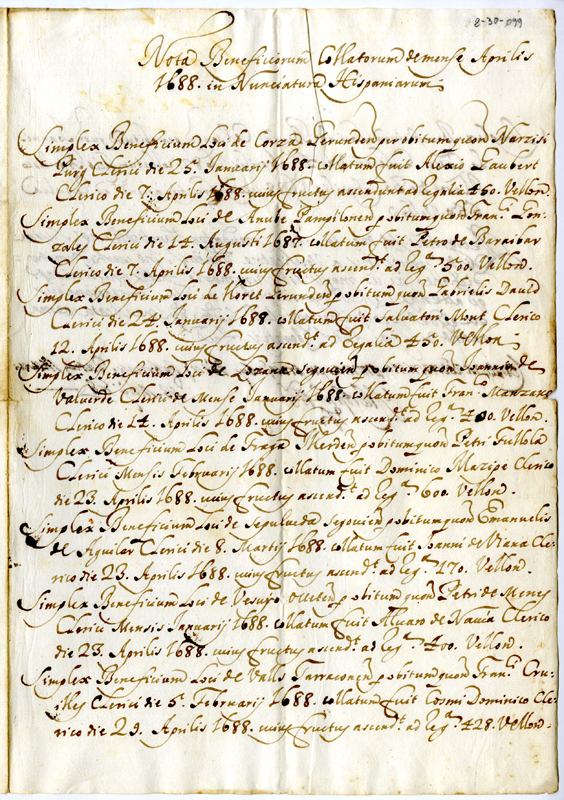 8-30-099
Nota Beneficiorum Collatorum de mense Aprilis
1688. in Nunciatura Hispaniarum
Simplex Beneficium Loci de Corza Gerunden p obitum quon Narzisi
Puig Clerici die 25. Januarij 1688. collatum fuit Alexio Gaubert
Clerico die 7. Aprilis 1688. cuius fructus ascendunt ad Regalia 460. Vellon.
Simplex Beneficium Loci de Anube Pampilonen p obitum quon Fran.ci Gon-
zales Clerici die 14. Augusti 1687. collatum fuit Petro de Baraibar
Clerico die 7. Aprilis 1688. cuius fructus ascend.t ad Reg.a 500. Vellon.
Simplex Beneficium Loci de Gerunden p obitum quon Gabrielis David
Clerici die 24. Januarij 1688. collatum fuit Salvatori Mont Clerico
12. Aprilis 1688. cuius fructus ascend.t ad Regalia 450. Vellon
Simplex Beneficium Loci de Lozana segovien p obitum quon Joannis de
Valverde Clerici de Mense Januarij 1688. collatum fuit Fran.co Manzano
Clerico die 14. Aprilis 1688. cuius fructus ascend.t ad Reg.a 400. Vellon.
Simplex Beneficium Loci de Fraga Illerden p obitum quon Petri
Clerici Mensis Februarij 1688. collatum fuit Dominico Clerico
die 23. Aprilis 1688. cuius fructus ascend.t ad Reg.a 600. Vellon.
Simplex Beneficium Loci de Sepulueda segovien p obitum quon Emanuelis
de Aguilar Clerici die 8. Martij 1688. collatum fuit Joanni de Viana Cle-
rico die 23. Aprilis 1688. cuius fructus ascend.t ad Reg.a 470. Vellon.
Simplex Beneficium Loci de Oveten p obitum quon Petri de Menes
Clerici Mensis Januarij 1688. collatum fuit Alvaro de Navia Clerico
die 23. Aprilis 1688. cuius fructus ascend.t ad Reg.a 400. Vellon.
Simplex Beneficium Loci de Valls Tarraconen p obitum quon Fran.ci Cru-
illes Clerici die 5. Februarij 1688. collatum fuit Cosmi Dominico Cle-
rico die 29. Aprilis 1688. cuius fructus ascend.t ad Reg.a 428. Vellon.